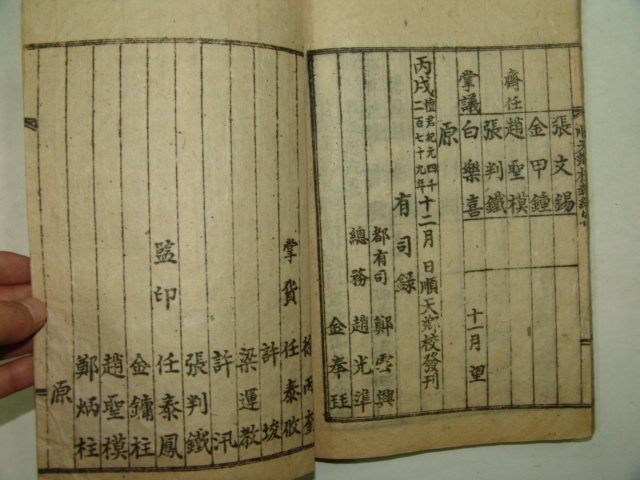 張文錫
金甲鍾
齋任 趙聖模
張判鐵
掌議 白樂喜 十一月 望
原
丙戌 檀君紀元四千
二百七十九年 十二月 日順天鄕校發刊
有司錄
都有司 鄭雲興
總務 趙光準
金奉珏
掌貨 任泰攸
許坡
梁運教
許汎
張判鐵
監印 任泰鳳
金鏞柱
趙聖模
鄭炳柱
原